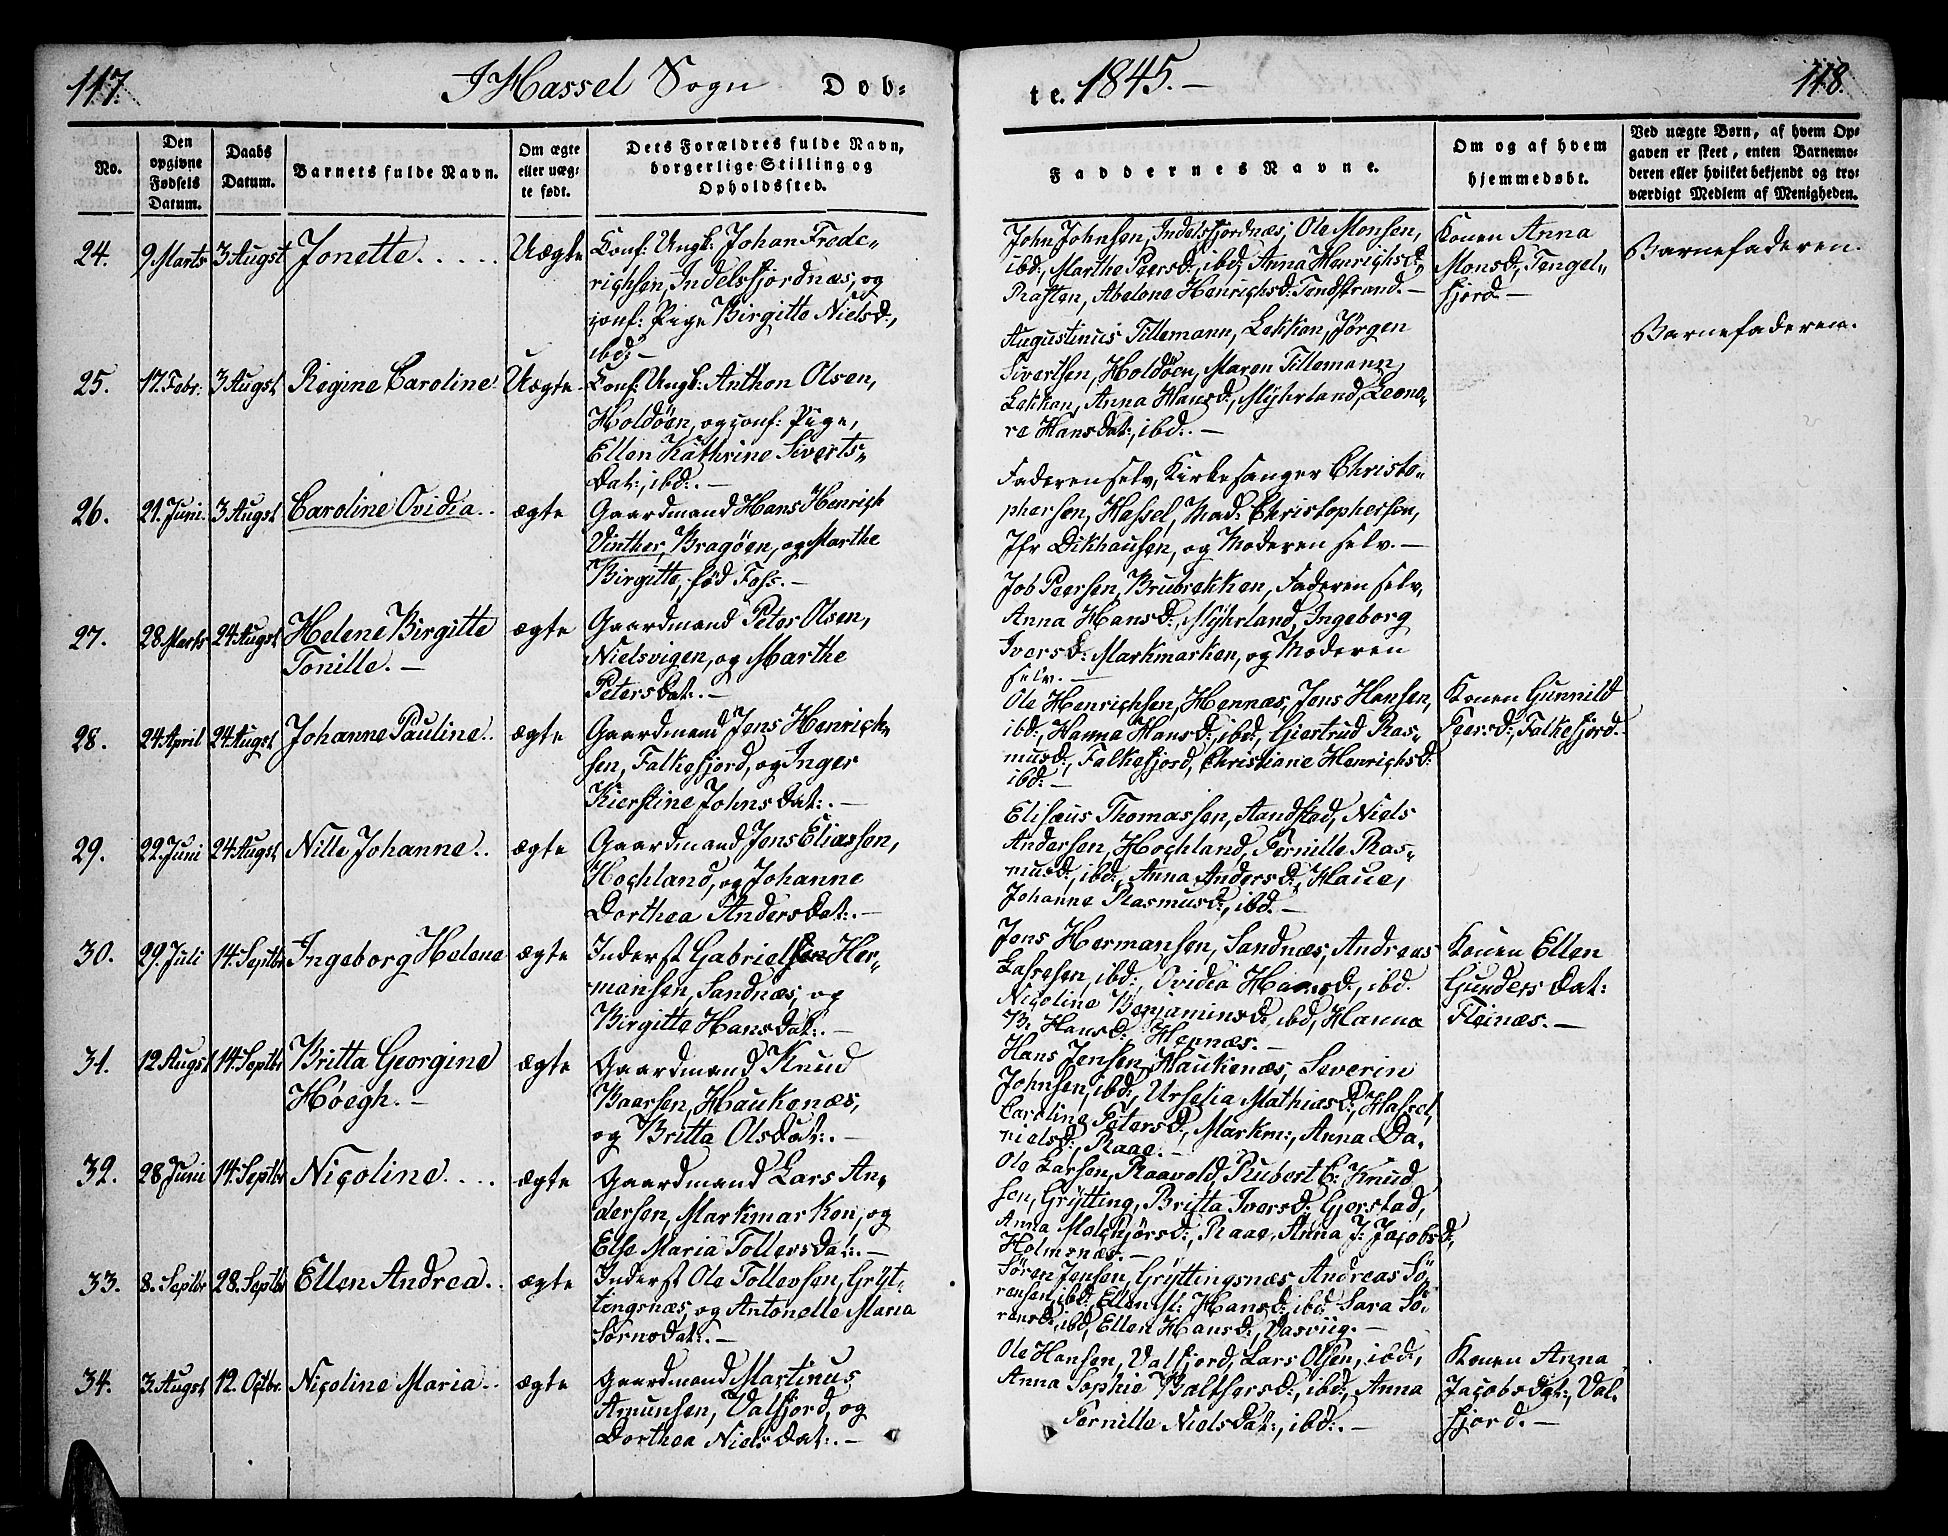 117.
I Hassel Sogn Døb-
te. 1845.-
118.
No.
Den opgivne Fødsels Datum.
Daabs Datum.
Barnets fulde Navn.
Om ægte eller uægte født.
Dets Forældres fulde Navn, borgerlige Stilling og Opholdssted.
Faddernes Navne.
Om og af hvem hjemmedøbt.
Ved uægte Børn, af hvem Opgaven er skeet, enten Barnemoderen eller hvilket bekjendt og troværdigt Medlem af Menigheden.
24. 9 Marts 3 Augst Jonette..... Uægte
Conf: Ungk: Johan Frede-
richsen, Indelsfjordnæs, og
conf: Pige Birgitte Nielsd:,
ibd:-
John Johnsen, Indelsfjordnæs, Ole Monsen,
ibd:, Marthe Peersd:, ibd:, Anna Henrichsd:,
Raften, Abelone Henrichsd: Tendstrand.-
Konen Anna
Monsd:, Tengel-
fjord.-
Barnefaderen.
25. 17. Febr: 3 Augst Regine Caroline. Uægte
Conf: Ungk: Anthon Olsen,
Holdöen, og conf: Pige,
Ellen Kathrine Siverts-
Dat:, ibd:.-
Augustinus Tillemann, Lekkan, Jørgen
Sivertsen, Holdöen, Maren Tillemann,
Lekkan, Anna Hansd:, Myhrland, Leono-
re Hansdat:, ibd:.-
Barnefaderen.
26. 21. Juni. 3 Augst Caroline Ovidia.. ægte
Gaardmand Hans Henrich
Vinther, Bragöen, og Marthe
Birgitte, fød Foss.-
Faderen selv, Kirkesanger Christo-
phersen, Hassel, Mad: Christophersen,
Jfr Dikhausen, og Moderen selv.-
27. 28 Marts 24 Augst Helene Birgitte
Tonille.- ægte
Gaardmand Peter Olsen,
Nielsvigen, og Marthe
Petersdat:.-
Job Peersen, Brubrekken, Faderen selv,
Anna Hansd:, Myhrland, Ingeborg
Iversd: Markmarken, og Moderen
selv.-
28. 24 April 24 Augst Johanne Pauline.. ægte
Gaardmand Jens Henrich-
sen, Falkefjord, og Inger
Kierstine Johnsdat:.-
Ole Henrichsen, Hennæs, Jens Hansen,
ibd:, Hanna Hansd:, ibd:, Giertrud Ras-
musd:, Falkefjord, Christiane Henrichsd:
ibd:-
Konen Gunnild
Peersd:, Falkefjord.-
29. 22. Juni 24 Augst Nille Johanne.. ægte
Gaardmand Jens Eliassen,
Hochland, og Johanne
Dorthea Andersdat:.-
Elisæus Thomassen, Sandstad, Niels
Andersen, Hochland, Pernille Ras-
musd:, ibd:, Anna Andersd:, Haue,
Johanne Rasmusd:, ibd.-
30. 29. Juli 14. Septbr Ingeborg Helene ægte
Inderst Gabriel Her-
mansen, Sandnæs, og
Birgitte Hansdat:.-
Jens Hermansen, Sandnæs, Andreas
Lassesen, ibd:, Ovidia Hansd:, ibd.
Nicoline Benjaminsd:, ibd, Hanna
B. Hansd:, Hennæs.-
Konen Ellen
Gundersdat:
Fleinæs.-
31. 12 Augst 14. Septbr Britta Georgine
Høegh.- ægte
Gaardmand Knud
Baarsen, Haukenæs,
og Britta Olsdat:.-
Hans Jensen, Haukenæs, Severin
Johnsen, ibd:, Urselia Mathiasd:, Hassel,
Caroline Petersd:, Markm:, Anna Da-
nielsd:, Raae.-
32. 28 Juni 14. Septbr Nicoline.... ægte
Gaardmand Lars An-
dersen, Markmarken, og
Else Maria Tollersdat:.-
Ole Larsen, Raavold, Rubert C: Knud
sen, Grytting, Britta Iversd: Gjerstad,
Anna Melchjørsd:, Raae, Anna J: Jacobsd:,
Holmsnæs.-
33. 8. Septbr 28. Septbr Ellen Andrea.. ægte
Inderst Ole Tollevsen, Gryt-
tingsnæs, og Antonelle Maria
Sørnsdat:.-
Søren Jensen, Gryttingsnæs, Andreas Sö-
rensen, ibd: Ellen M: Hansd:, ibd: Sara Sö-
rensd:, ibd, Ellen Hansd:, Vasviig.-
34. 3. Augst 12. Octbr: Nicoline Maria.. ægte
Gaardmand Martinus
Amunsen, Valfjord, og
Dorthea Nielsdat:.-
Ole Hansen, Valfjord, Lars Olsen, ibd:,
Anna Sophie Balthersd:, ibd:, Anna
Pernille Nielsdat:, ibd:.-
Konen Anna
Jacobsdat:, Val-
fjord.-